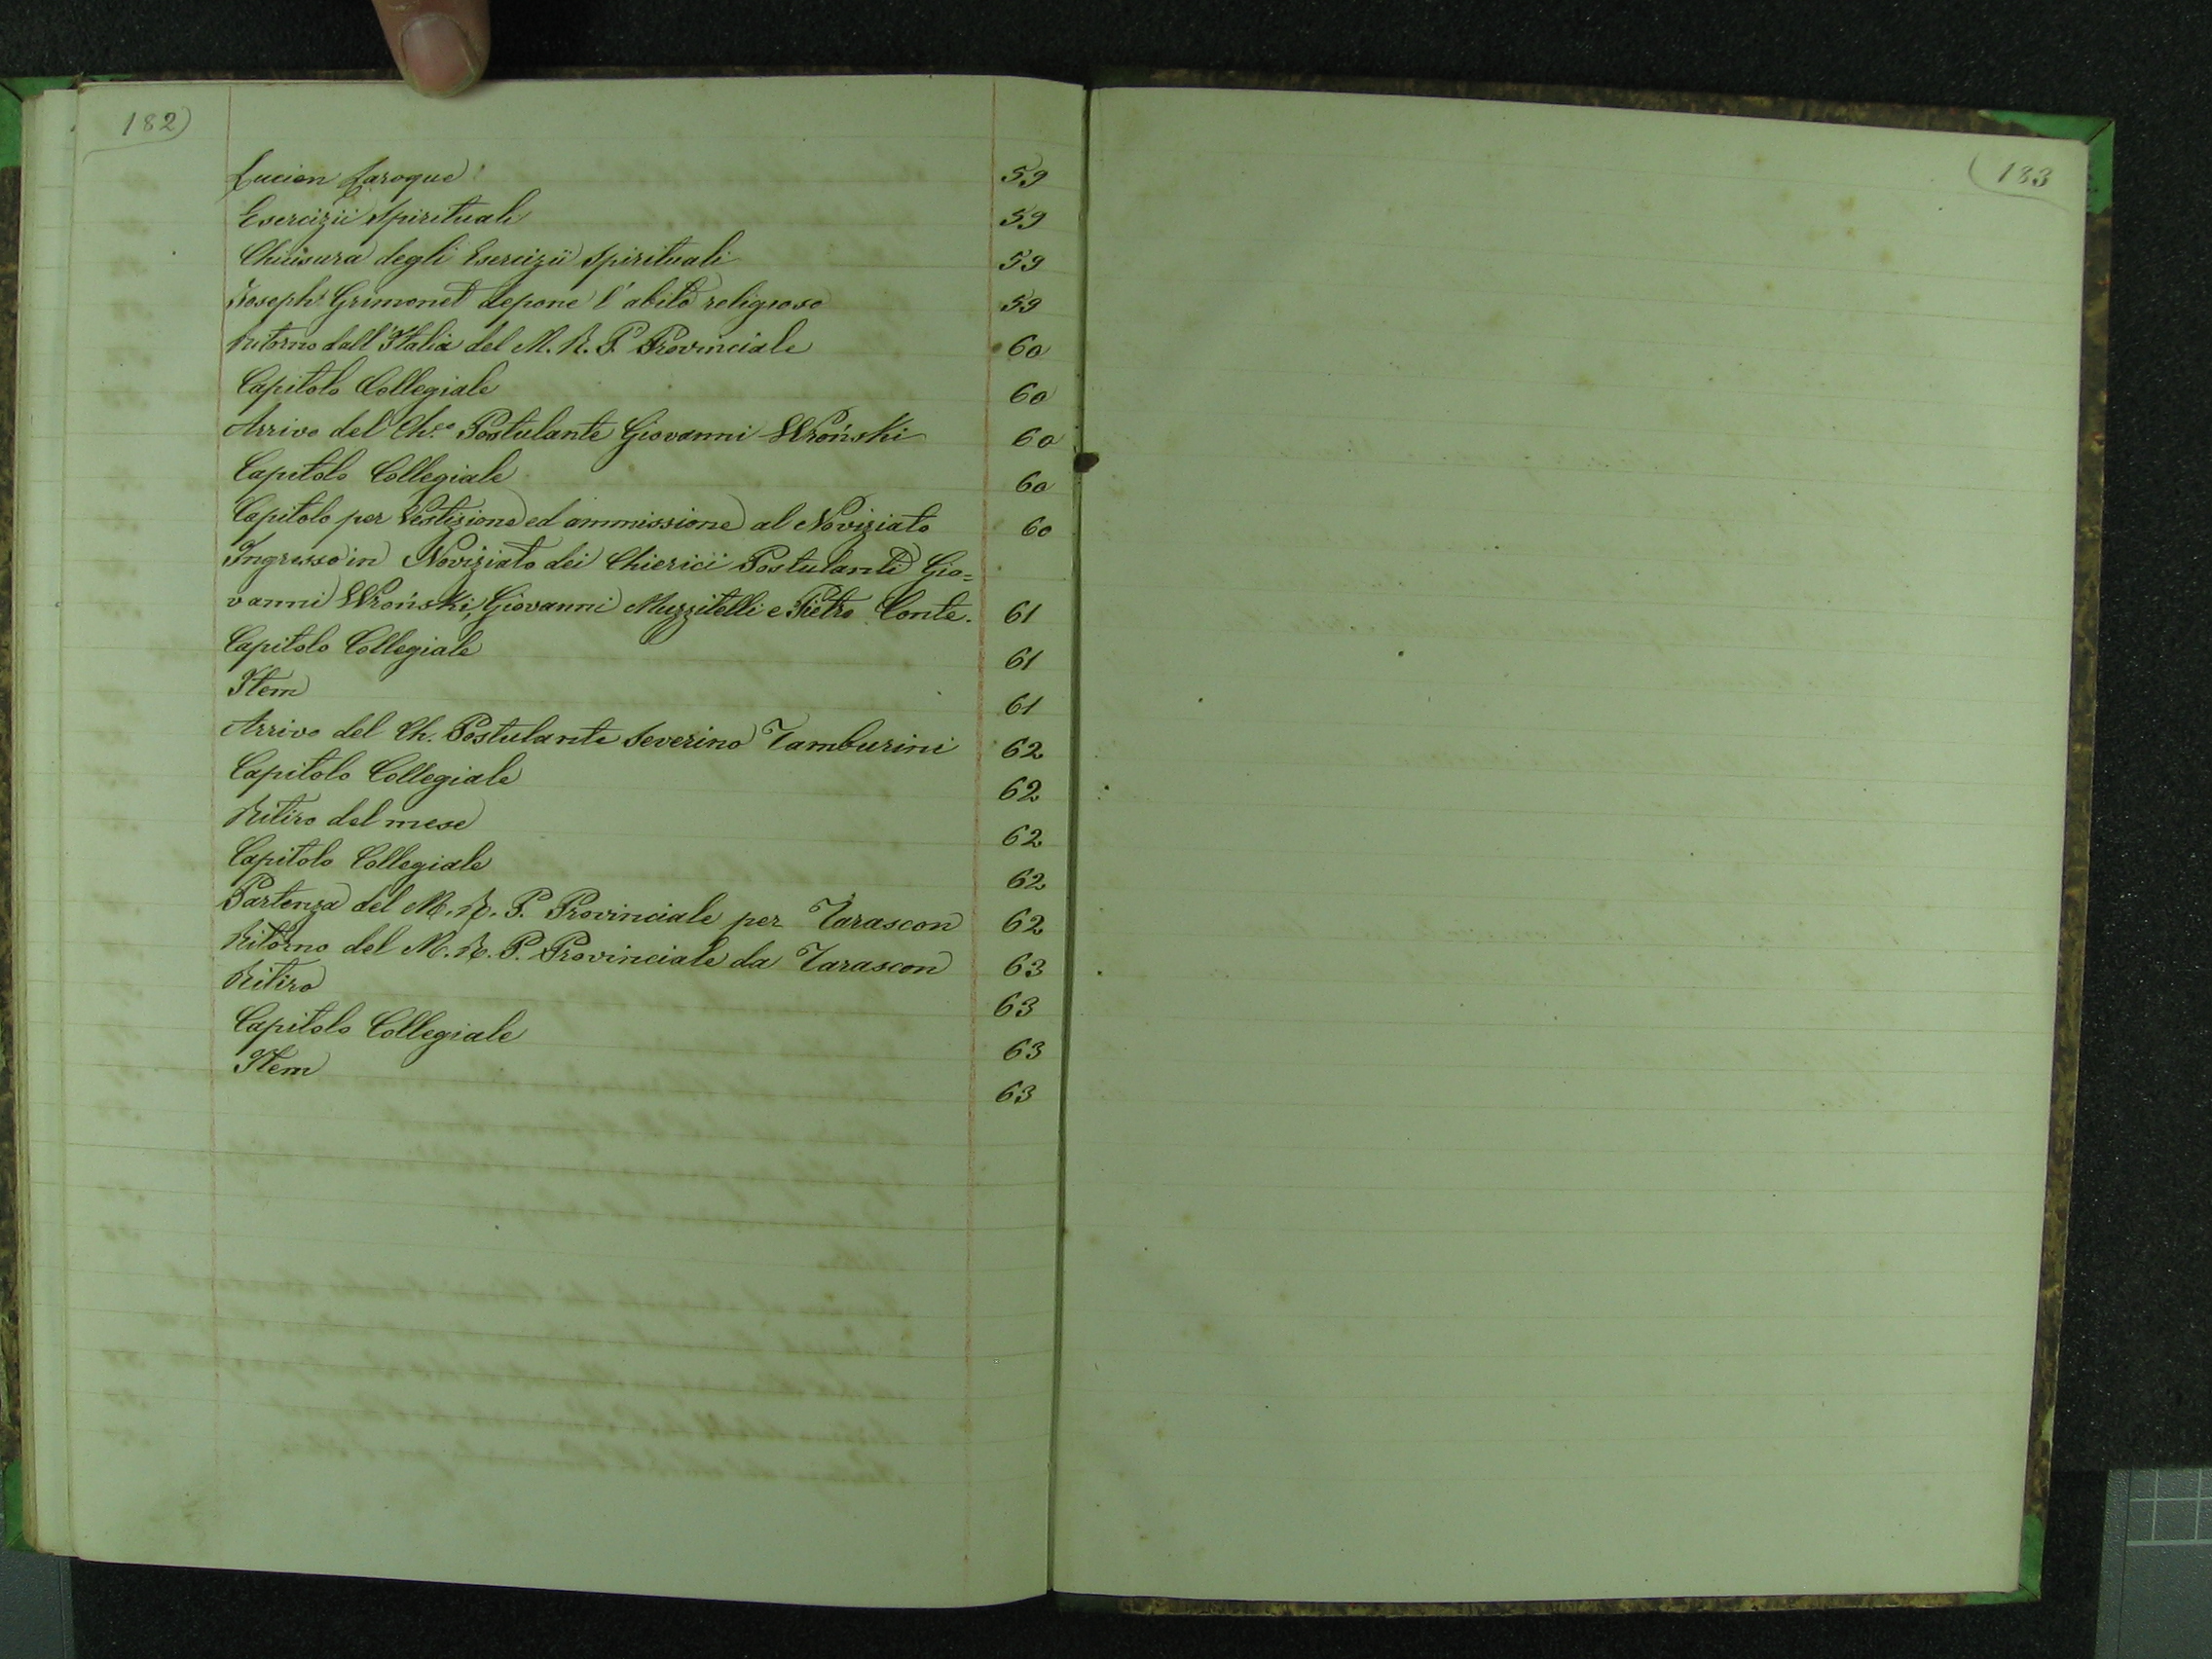 182)
Lucien Laroque 59
Esercizii Spirituali 59
Chiusura degli Esercizii Spirituali 59
Joseph Grimonet depone l'abito religioso 59
Ritorno dall'Italia del M. R. P. Provinciale 60
Capitolo Collegiale 60
Arrivo del Ch.º Postulante Giovanni Wroński 60
Capitolo Collegiale 60
Capitolo per Vestizione ed ammissione al Noviziato 60
Ingresso in Noviziato dei Chierici Postulanti Gio=
vanni Wroński, Giovanni Muzzitelli e Pietro Conte. 61
Capitolo Collegiale 61
Item 61
Arrivo del Ch. Postulante Severino Tamburini 62
Capitolo Collegiale 62
Ritiro del mese 62
Capitolo Collegiale 62
Partenza del M. R. P. Provinciale per Tarascon 62
Ritorno del M. R. P. Provinciale da Tarascon 63
Ritiro 63
Capitolo Collegiale 63
Item 63
(183